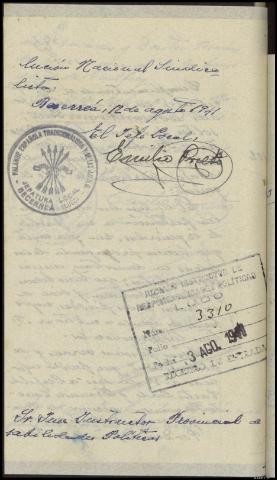 lución Nacional Sindica
lista.
Becerreá, 12 de agosto 1941
El Jefe Local;
Emilio
FALANGE ESPAÑOLA TRADICIONALISTA Y DE LAS J.O.N.S.
JEFATURA LOCAL
BECERREÁ
JUZGADO INSTRUCTOR DE
RESPONSABILIDADES POLITICAS
LUGO
Núm. 3310
Folio
Fecha 13 AGO. 1941
REGISTRO DE ENTRADA
Sr. Juez Instructor Provincial de
sabilidades Políticas